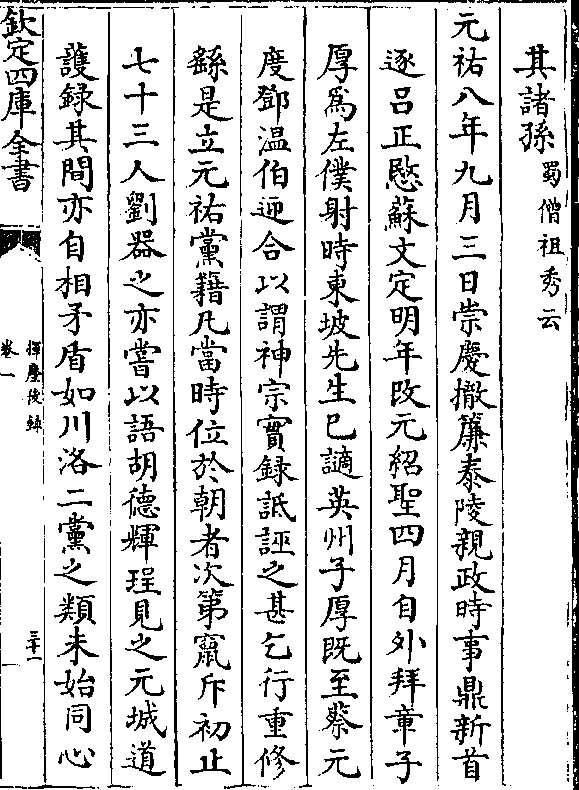 其諸孫蜀僧祖秀云
元祐八年九月三日崇慶撤簾泰陵親政時事鼎新首
逐呂正愍蘇文定明年改元紹聖四月自外拜章子
厚爲左僕射時東坡先生已謫英州子厚既至蔡元
度鄧温伯迎合以謂神宗實録詆誣之甚乞行重修
繇是立元祐黨籍凡當時位於朝者次第竄斥初止
七十三人劉器之亦嘗以語胡德輝珵見之元城道
護録其間亦自相矛盾如川洛二黨之類未始同心
欽定四庫全書
揮麈後録
卷一
三十一